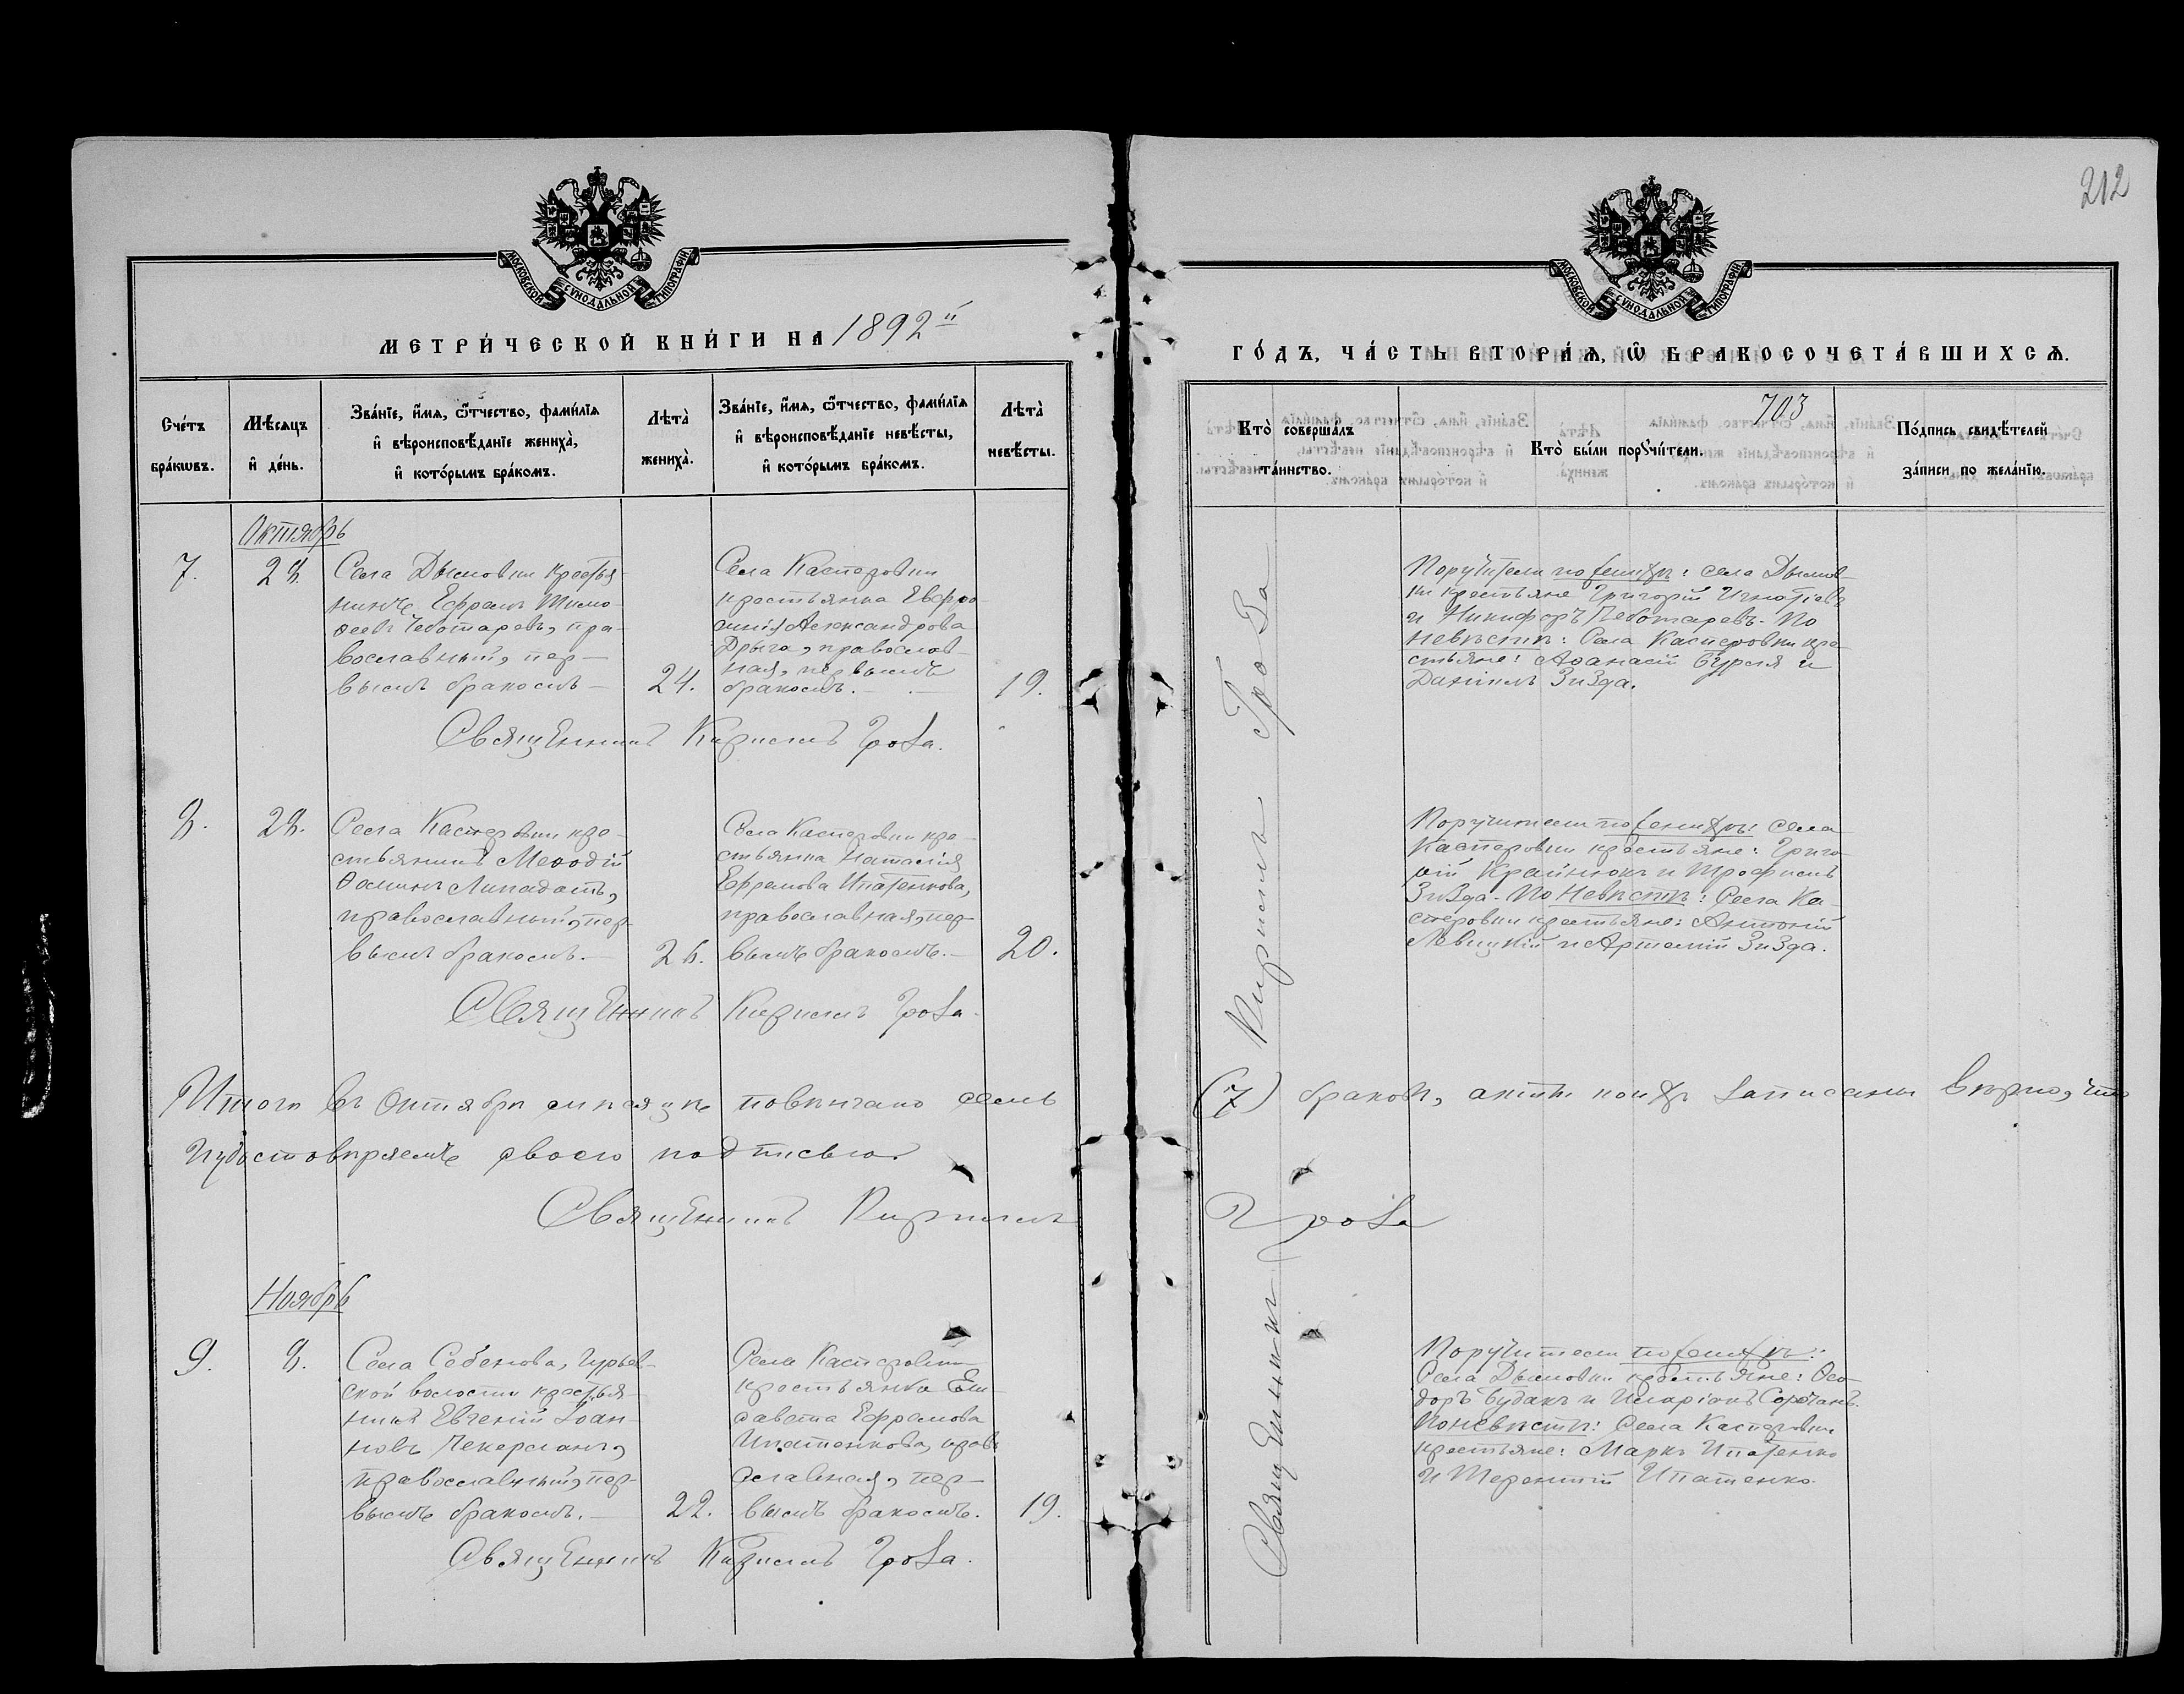 212
МОСКОВСКОЙ СУНОДАЛЬНОЙ ТИПОГРАФІИ
МЕТРИ́ЧЕСКОЙ КНИ́ГИ НА 1892 й
Сче́тъ бра́кωвъ.
Мѣ́сяцъ и҆ де́нь.
Зва́нїе, и҆́мѧ, ѻ҆́тчество, фами́лїѧ
и҆ вѣроисповѣ́данїе жениха̀,
и҆ кото́рымъ бра́комъ.
Лѣта̀ жениха̀.
Зва́нїе, и҆́мѧ, ѻ҆́тчество, фами́лїѧ
и҆ вѣроисповѣ́данїе невѣ́сты,
и҆ кото́рымъ бра́комъ.
Лѣта̀ невѣ́сты.
Октябрь
7.
28.
Села Дымовки крестья-
нинъ Ефремъ Тимо-
ѳеевъ Чеботаревъ, пра-
вославный, пер-
вымъ бракомъ
24.
Села Касперовки
крестьянка Евфро-
синія Александрова
Дрыга, православ-
ная, первымъ
бракомъ.
19.
Священникъ Кирилъ Гроза.
8.
28.
Села Касперовки кре-
стьянинъ Меѳодій
Ѳоминъ Липадатъ,
православный, пер-
вымъ бракомъ.
26.
Села Касперовки кре-
стьянка Наталія
Ефремова Ипатенкова,
православная, пер-
вымъ бракомъ.
20.
Священникъ Кирилъ Гроза.
Итого въ Октябрѣ мѣсяцѣ повѣнчано семь
удостовѣряемъ своею подписью.
Священникъ Кирилъ
Ноябрь
9.
8.
Села Себенова, Гурьев-
ской волости крестья-
нинъ Евгеній Іоан-
новъ Чекерланъ,
православный, пер-
вымъ бракомъ.
22.
Села Касперовки
крестьянка Ели-
савета Ефремова
Ипатенкова, прав-
ославная, пер-
вымъ бракомъ.
19.
Священникъ Кирилъ Гроза.
МОСКОВСКОЙ СУНОДАЛЬНОЙ ТИПОГРАФІИ
ГО́ДЪ, ЧА́СТЬ ВТОРА́Ѧ, Ѽ БРАКОСОЧЕТА́ВШИХСѦ.
703
Кто̀ соверша́лъ
та́инство.
Кто̀ бы́ли порꙋчи́тели.
По́дпись свидѣ́телей
за́писи по жела́нїю.
Священникъ Кирилъ Гроза
Поручители по женихѣ: села Дымов-
ки крестьяне Григорій Игнатіевъ
и Никифоръ Чеботаревъ. По
невѣстѣ: Села Касперовки кре-
стьяне: Аѳанасій Бурля и
Даніилъ Зизда.
Поручители по женихѣ: села
Касперовки крестьяне: Григо-
рій Крайнюкъ и Трофимъ
Зизда. По невѣстѣ: Села Ка-
сперовки крестьяне: Антоній
Левицкій и Артемій Зизда.
(7) браковъ, актъ коихъ записаны вѣрно, что
Гроза
Поручители по женихѣ:
Села Дымовки крестьяне: Ѳео-
доръ Будакъ и Иларіонъ Сорочанъ.
По невѣстѣ: Села Касперовки
крестьяне: Маркъ Ипатенко
и Терентій Ипатенко.